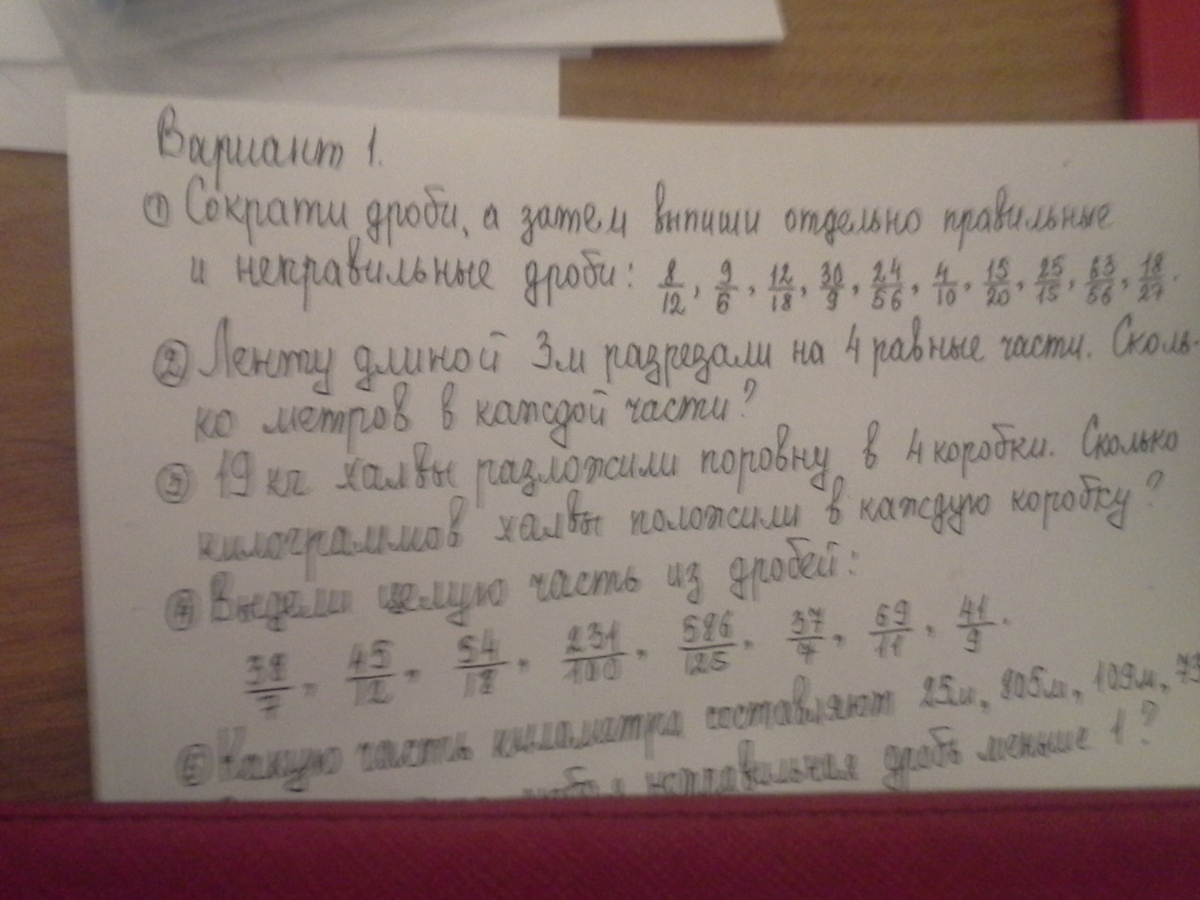 Вариант 1.
① Сократи дроби, а затем выпиши отдельно правильные
и неправильные дроби: 8/12, 9/6, 12/18, 30/9, 24/56, 4/10, 15/20, 25/15, 63/56, 18/27.
② Ленту длиной 3м разрезали на 4 равные части. Сколь-
ко метров в каждой части?
③ 19 кг халвы разложили поровну в 4 коробки. Сколько
килограммов халвы положили в каждую коробку?
④ Выдели целую часть из дробей:
38/7, 45/12, 54/18, 231/100, 586/125, 37/7, 69/11, 41/9.
⑤ Какую часть километра составляют 25м, 205м, 109м, 73
неправильная дробь меньше 1?